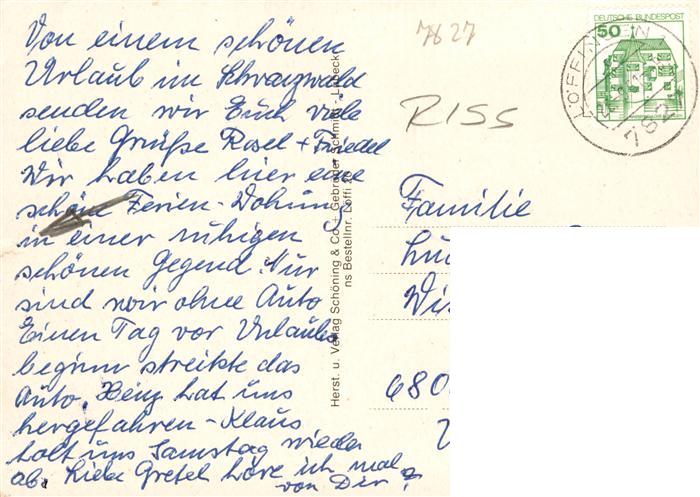 Von einem schönen
Urlaub im Schwarzwald
senden wir Euch viele
liebe Grüße Rosel + Friedel
Wir haben hier eine
schöne Ferien-Wohung
in einer ruhigen
schönen Gegend. Nur
sind wir ohne Auto
Einen Tag vor Urlaubs
beginn streikte das
Auto. Heinz hat uns
hergefahren - Klaus
holt uns Samstag wieder
ab. Liebe Gretel höre ich mal
von Dir?
Herst. u. Verlag Schöning & Co + Gebrüder Schmidt, Lübeck
ns Bestellnr. Löffi 28
7827
RISS
DEUTSCHE BUNDESPOST
50
LÖFFINGEN
782
Familie
680